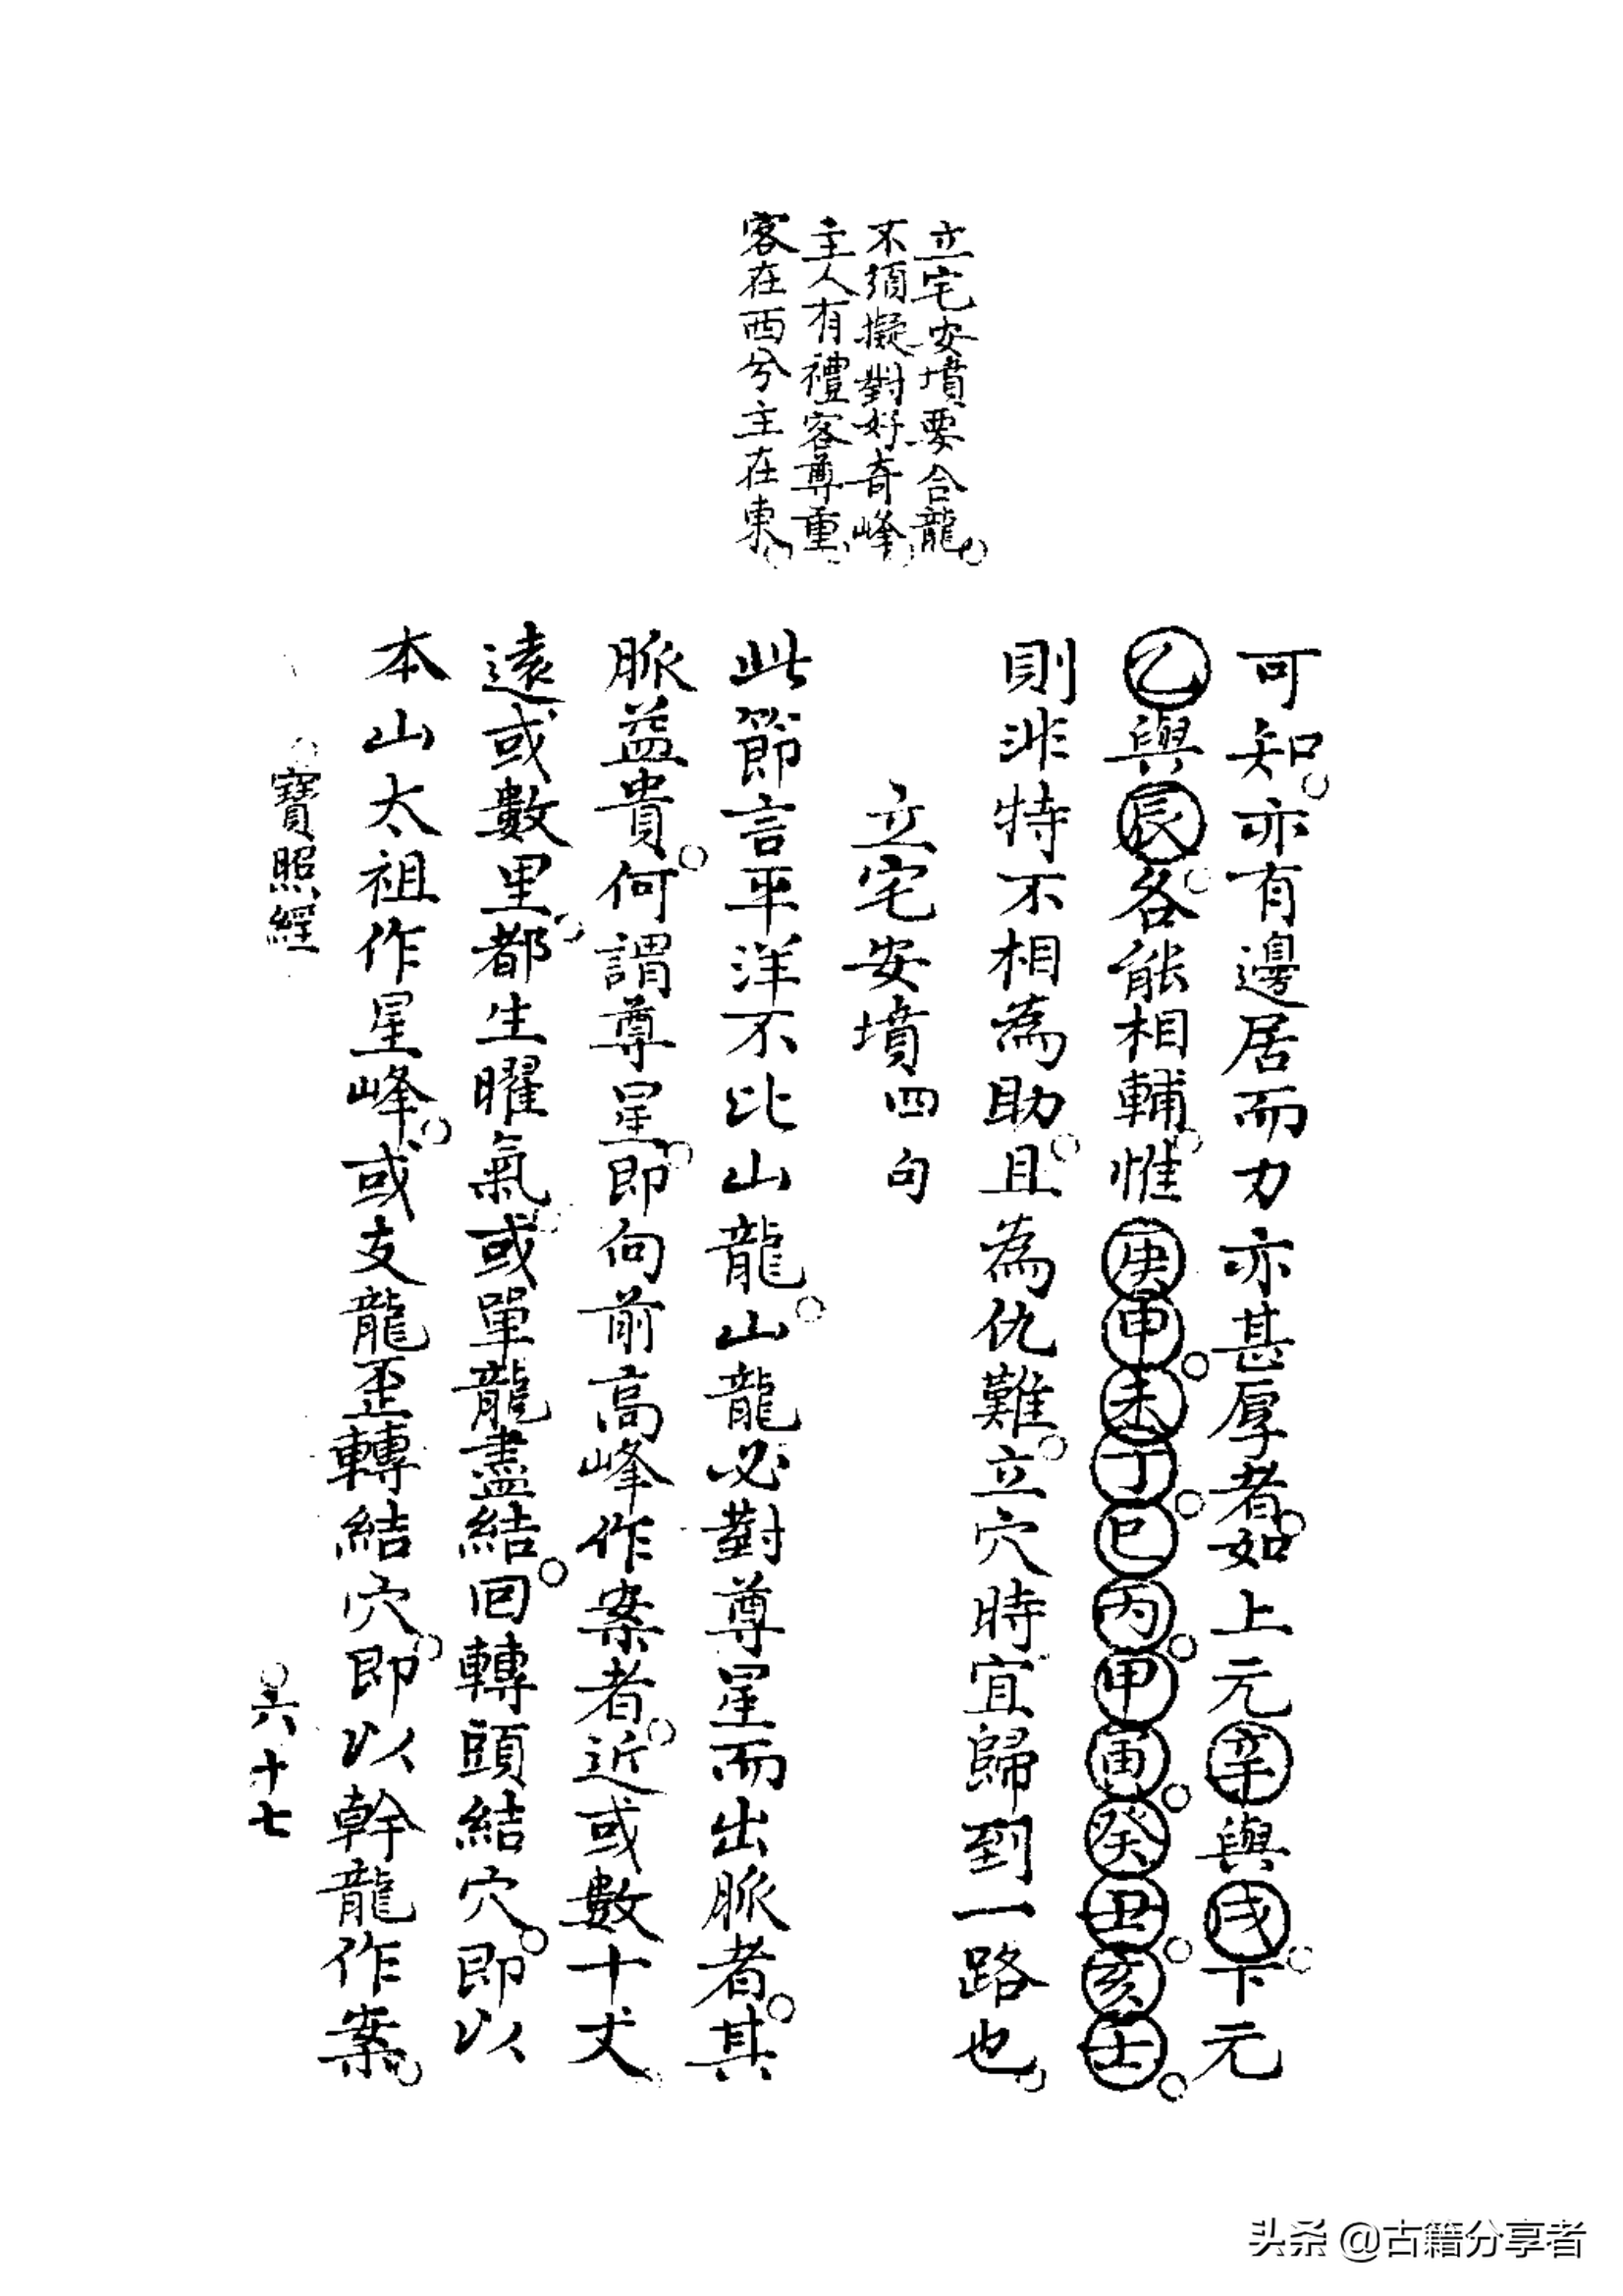 立宅安墳要合龍。
不須擬對好奇峰。
主人有禮客尊重。
客在西兮主在東。
可知。亦有邊居而力亦甚厚者。如上元辛與戌。下元
乙與辰。各能相輔。惟庚申。未丁。巳丙。甲寅。癸丑。亥壬。
則非特不相為助。且為仇難。立穴時宜歸到一路也。
立宅安墳四句
此節言平洋不比山龍。山龍必對尊星而出脈者。其
脈益貴。何謂尊星。即向前高峰作案者。近或數十丈。
遠或數里。都生曜氣。或單龍盡結。回轉頭結穴。即以
本山太祖作星峰。或支龍歪轉結穴。即以幹龍作案。
寶照經
六十七
头条 @古籍分享者